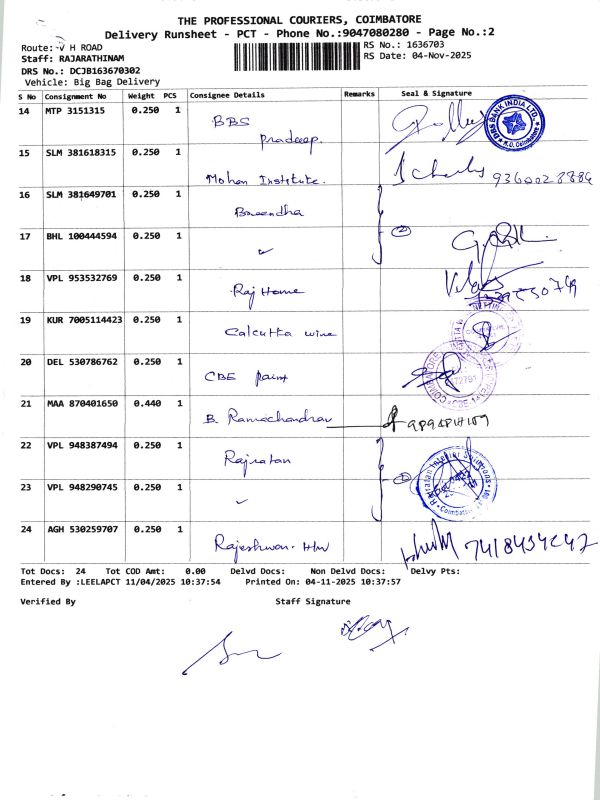 THE PROFESSIONAL COURIERS, COIMBATORE
Delivery Runsheet - PCT - Phone No.:9047080280 - Page No.:2
Route: V H ROAD
RS No.: 1636703
Staff: RAJARATHINAM
RS Date: 04-Nov-2025
DRS No.: DCJB163670302
Vehicle: Big Bag Delivery
S No Consignment No Weight PCS Consignee Details Remarks Seal & Signature
14 MTP 3151315 0.250 1 BBS pradeep.
15 SLM 381618315 0.250 1 Mohan Institute. 9360028884
16 SLM 381649701 0.250 1
17 BHL 100444594 0.250 1
18 VPL 953532769 0.250 1 Raj Home
19 KUR 7005114423 0.250 1 Calcutta wire
20 DEL 530786762 0.250 1 CBE paint
21 MAA 870401650 0.440 1 B. Ramachandran
22 VPL 948387494 0.250 1 Rajratan
23 VPL 948290745 0.250 1
24 AGH 530259707 0.250 1 Rajeshwari
Tot Docs: 24 Tot COD Amt: 0.00 Delvd Docs: Non Delvd Docs: Delvy Pts:
Entered By :LEELAPCT 11/04/2025 10:37:54 Printed On: 04-11-2025 10:37:57
Verified By Staff Signature